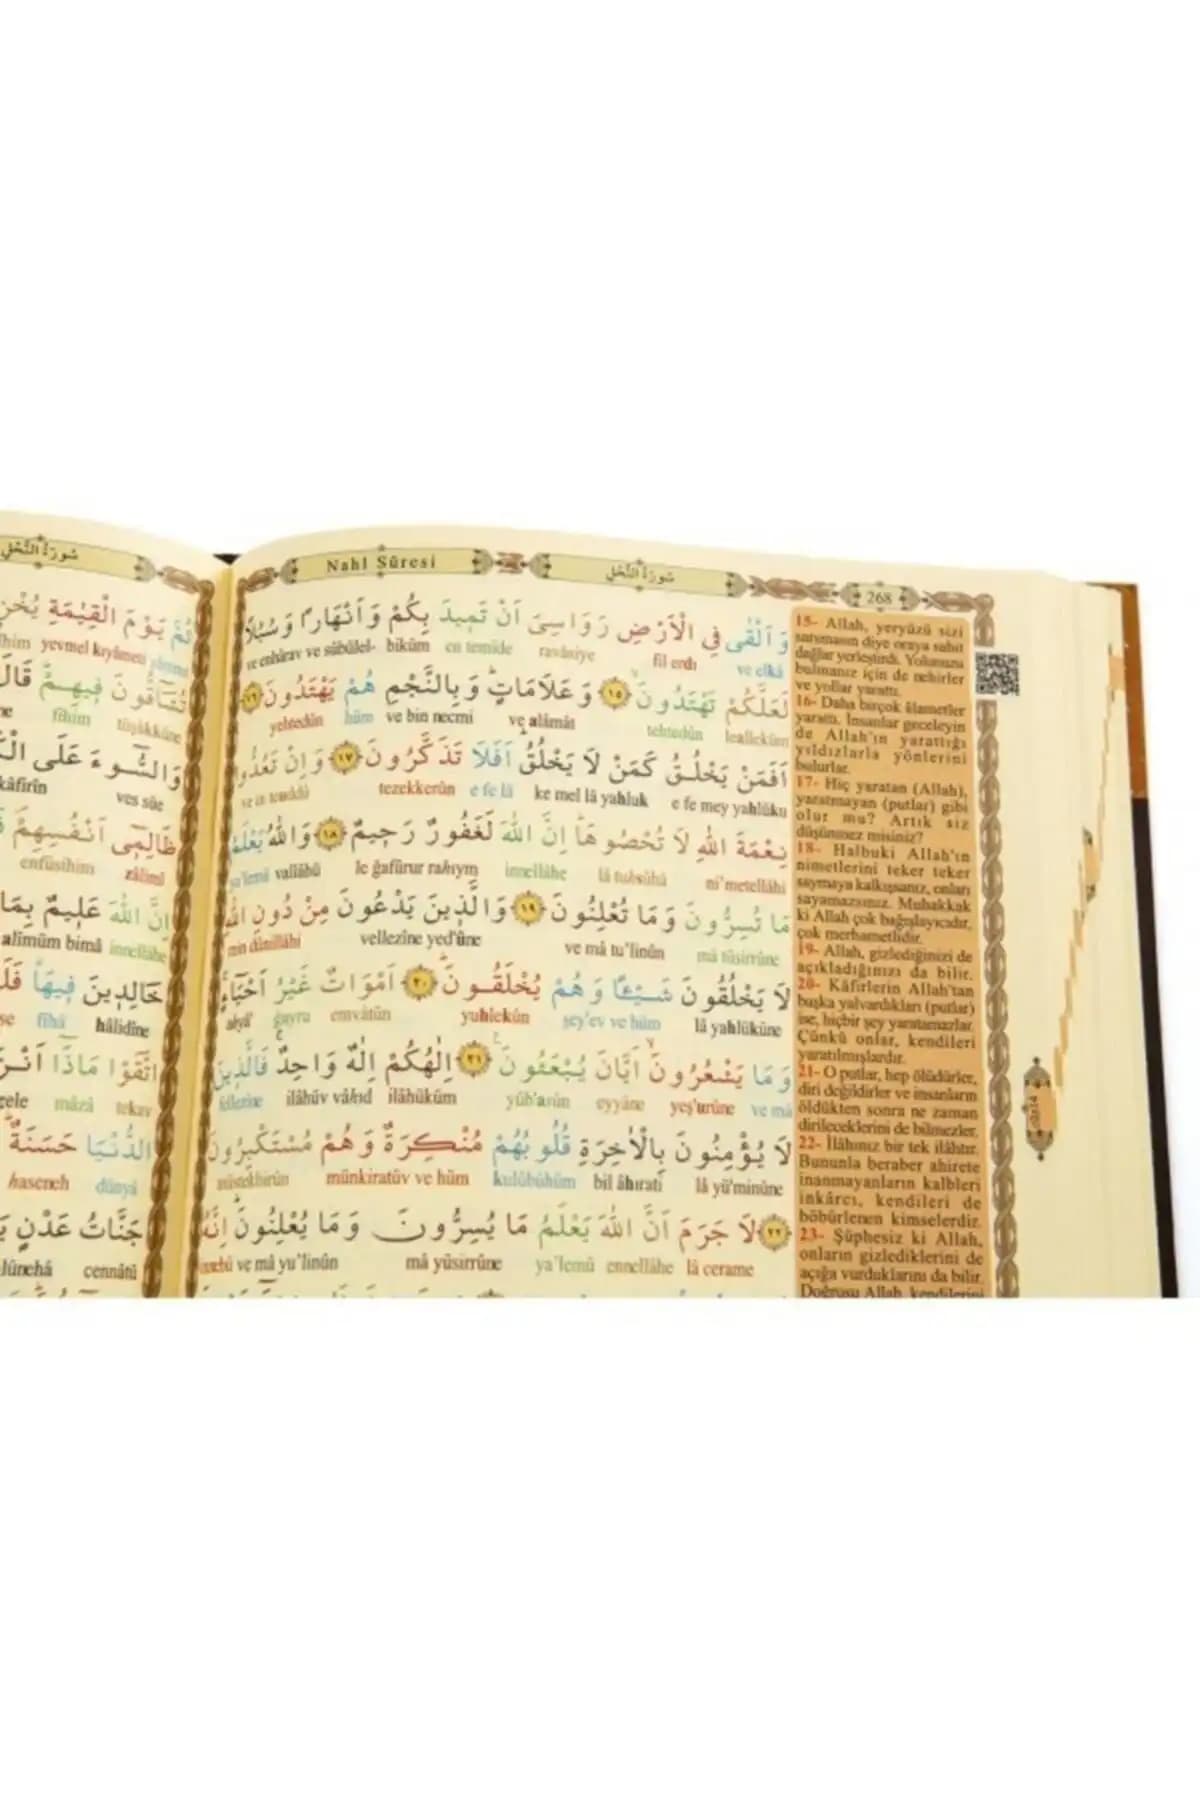 Nahl Sûresi
سُورَةُ النَّحْلِ
268
وَ اَلْقٰى فِي الْاَرْضِ رَوَاسِيَ اَنْ تَم۪يدَ بِكُمْ وَ اَنْهَارًا وَ سُبُلًا
ve elkâ fil erdı ravâsiye en temîde biküm ve enhârav ve sübülel-
لَعَلَّكُمْ تَهْتَدُونَۙ ﴿١٥﴾ وَ عَلَامَاتٍۜ وَ بِالنَّجْمِ هُمْ يَهْتَدُونَ ﴿١٦﴾
lealleküm tehtedûn ve alâmât ve bin necmi hüm yehtedûn
اَفَمَنْ يَخْلُقُ كَمَنْ لَا يَخْلُقُۜ اَفَلَا تَذَكَّرُونَ ﴿١٧﴾ وَ اِنْ تَعُدُّوا
e fe mey yahlüku ke mel lâ yahluk e fe lâ tezekkerûn ve in teuddû
نِعْمَةَ اللّٰهِ لَا تُحْصُوهَاۜ اِنَّ اللّٰهَ لَغَفُورٌ رَح۪يمٌ ﴿١٨﴾ وَ اللّٰهُ يَعْلَمُ
ni'metellâhi lâ tuhsûhâ innellâhe le ğafûrur rahıym vallâhü ya'lemü
مَا تُسِرُّونَ وَ مَا تُعْلِنُونَ ﴿١٩﴾ وَ الَّذ۪ينَ يَدْعُونَ مِنْ دُونِ اللّٰهِ
mâ tüsirrûne ve mâ tu'linûn vellezîne yed'ûne min dûnillâhi
لَا يَخْلُقُونَ شَيْـًٔا وَ هُمْ يُخْلَقُونَۜ ﴿٢٠﴾ اَمْوَاتٌ غَيْرُ اَحْيَٓاءٍۚ
lâ yahlükûne şey'ev ve hüm yuhlekûn emvâtün ğayru ahyâ'
وَ مَا يَشْعُرُونَۙ اَيَّانَ يُبْعَثُونَ۟ ﴿٢١﴾ اِلٰهُكُمْ اِلٰهٌ وَاحِدٌۚ فَالَّذ۪ينَ
ve mâ yeş'urûne eyyâne yüb'asûn ilâhüküm ilâhüv vâhıd fellezîne
لَا يُؤْمِنُونَ بِالْاٰخِرَةِ قُلُوبُهُمْ مُنْكِرَةٌ وَ هُمْ مُسْتَكْبِرُونَ
lâ yü'minûne bil âhırati kulûbühüm münkiratüv ve hüm müstekbirûn
﴿٢٢﴾ لَا جَرَمَ اَنَّ اللّٰهَ يَعْلَمُ مَا يُسِرُّونَ وَ مَا يُعْلِنُونَۜ اِنَّهُ
lâ cerame ennellâhe ya'lemü mâ yüsirrûne ve mâ yu'linûn innehû
15- Allah, yeryüzü sizi
sarsmasın diye oraya sabit
dağlar yerleştirdi. Yolunuzu
bulmanız için de nehirler
ve yollar yarattı.
16- Daha birçok âlametler
yarattı. İnsanlar geceleyin
de Allah'ın yarattığı
yıldızlarla yönlerini
bulurlar.
17- Hiç yaratan (Allah),
yaratmayan (putlar) gibi
olur mu? Artık siz
düşünmez misiniz?
18- Halbuki Allah'ın
nimetlerini teker teker
saymaya kalkışsanız, onları
sayamazsınız. Muhakkak
ki Allah çok bağışlayıcıdır,
çok merhametlidir.
19- Allah, gizlediğinizi de
açıkladığınızı da bilir.
20- Kâfirlerin Allah'tan
başka yalvardıkları (putlar)
ise, hiçbir şey yaratamazlar.
Çünkü onlar, kendileri
yaratılmışlardır.
21- O putlar, hep ölüdürler,
diri değildirler ve insanların
öldükten sonra ne zaman
dirileceklerini de bilmezler.
22- İlâhınız bir tek ilâhtır.
Bununla beraber ahirete
inanmayanların kalbleri
inkârcı, kendileri de
böbürlenen kimselerdir.
23- Şüphesiz ki Allah,
onların gizlediklerini de
açığa vurduklarını da bilir.
Doğrusu Allah, kendilerini
سُورَةُ النَّحْلِ
ثُمَّ يَوْمَ الْقِيٰمَةِ
yevmel kıyâmeti
تُشَٓاقُّونَ ف۪يهِمْۜ قَالَ
tüşâkkûne fîhim
وَ السُّٓوءَ عَلَى
ves sûe kâfirîn
ظَالِم۪ٓي اَنْفُسِهِمْ
zâlimî enfüsihim
اِنَّ اللّٰهَ عَل۪يمٌ بِمَا
innellâhe alîmüm bimâ
خَالِد۪ينَ ف۪يهَاۜ
hâlidîne fîhâ
اتَّقَوْا مَاذَٓا
tekav mâzâ
الدُّنْيَا حَسَنَةٌۜ
dünyâ haseneh
جَنَّاتُ عَدْنٍ
cennâtü